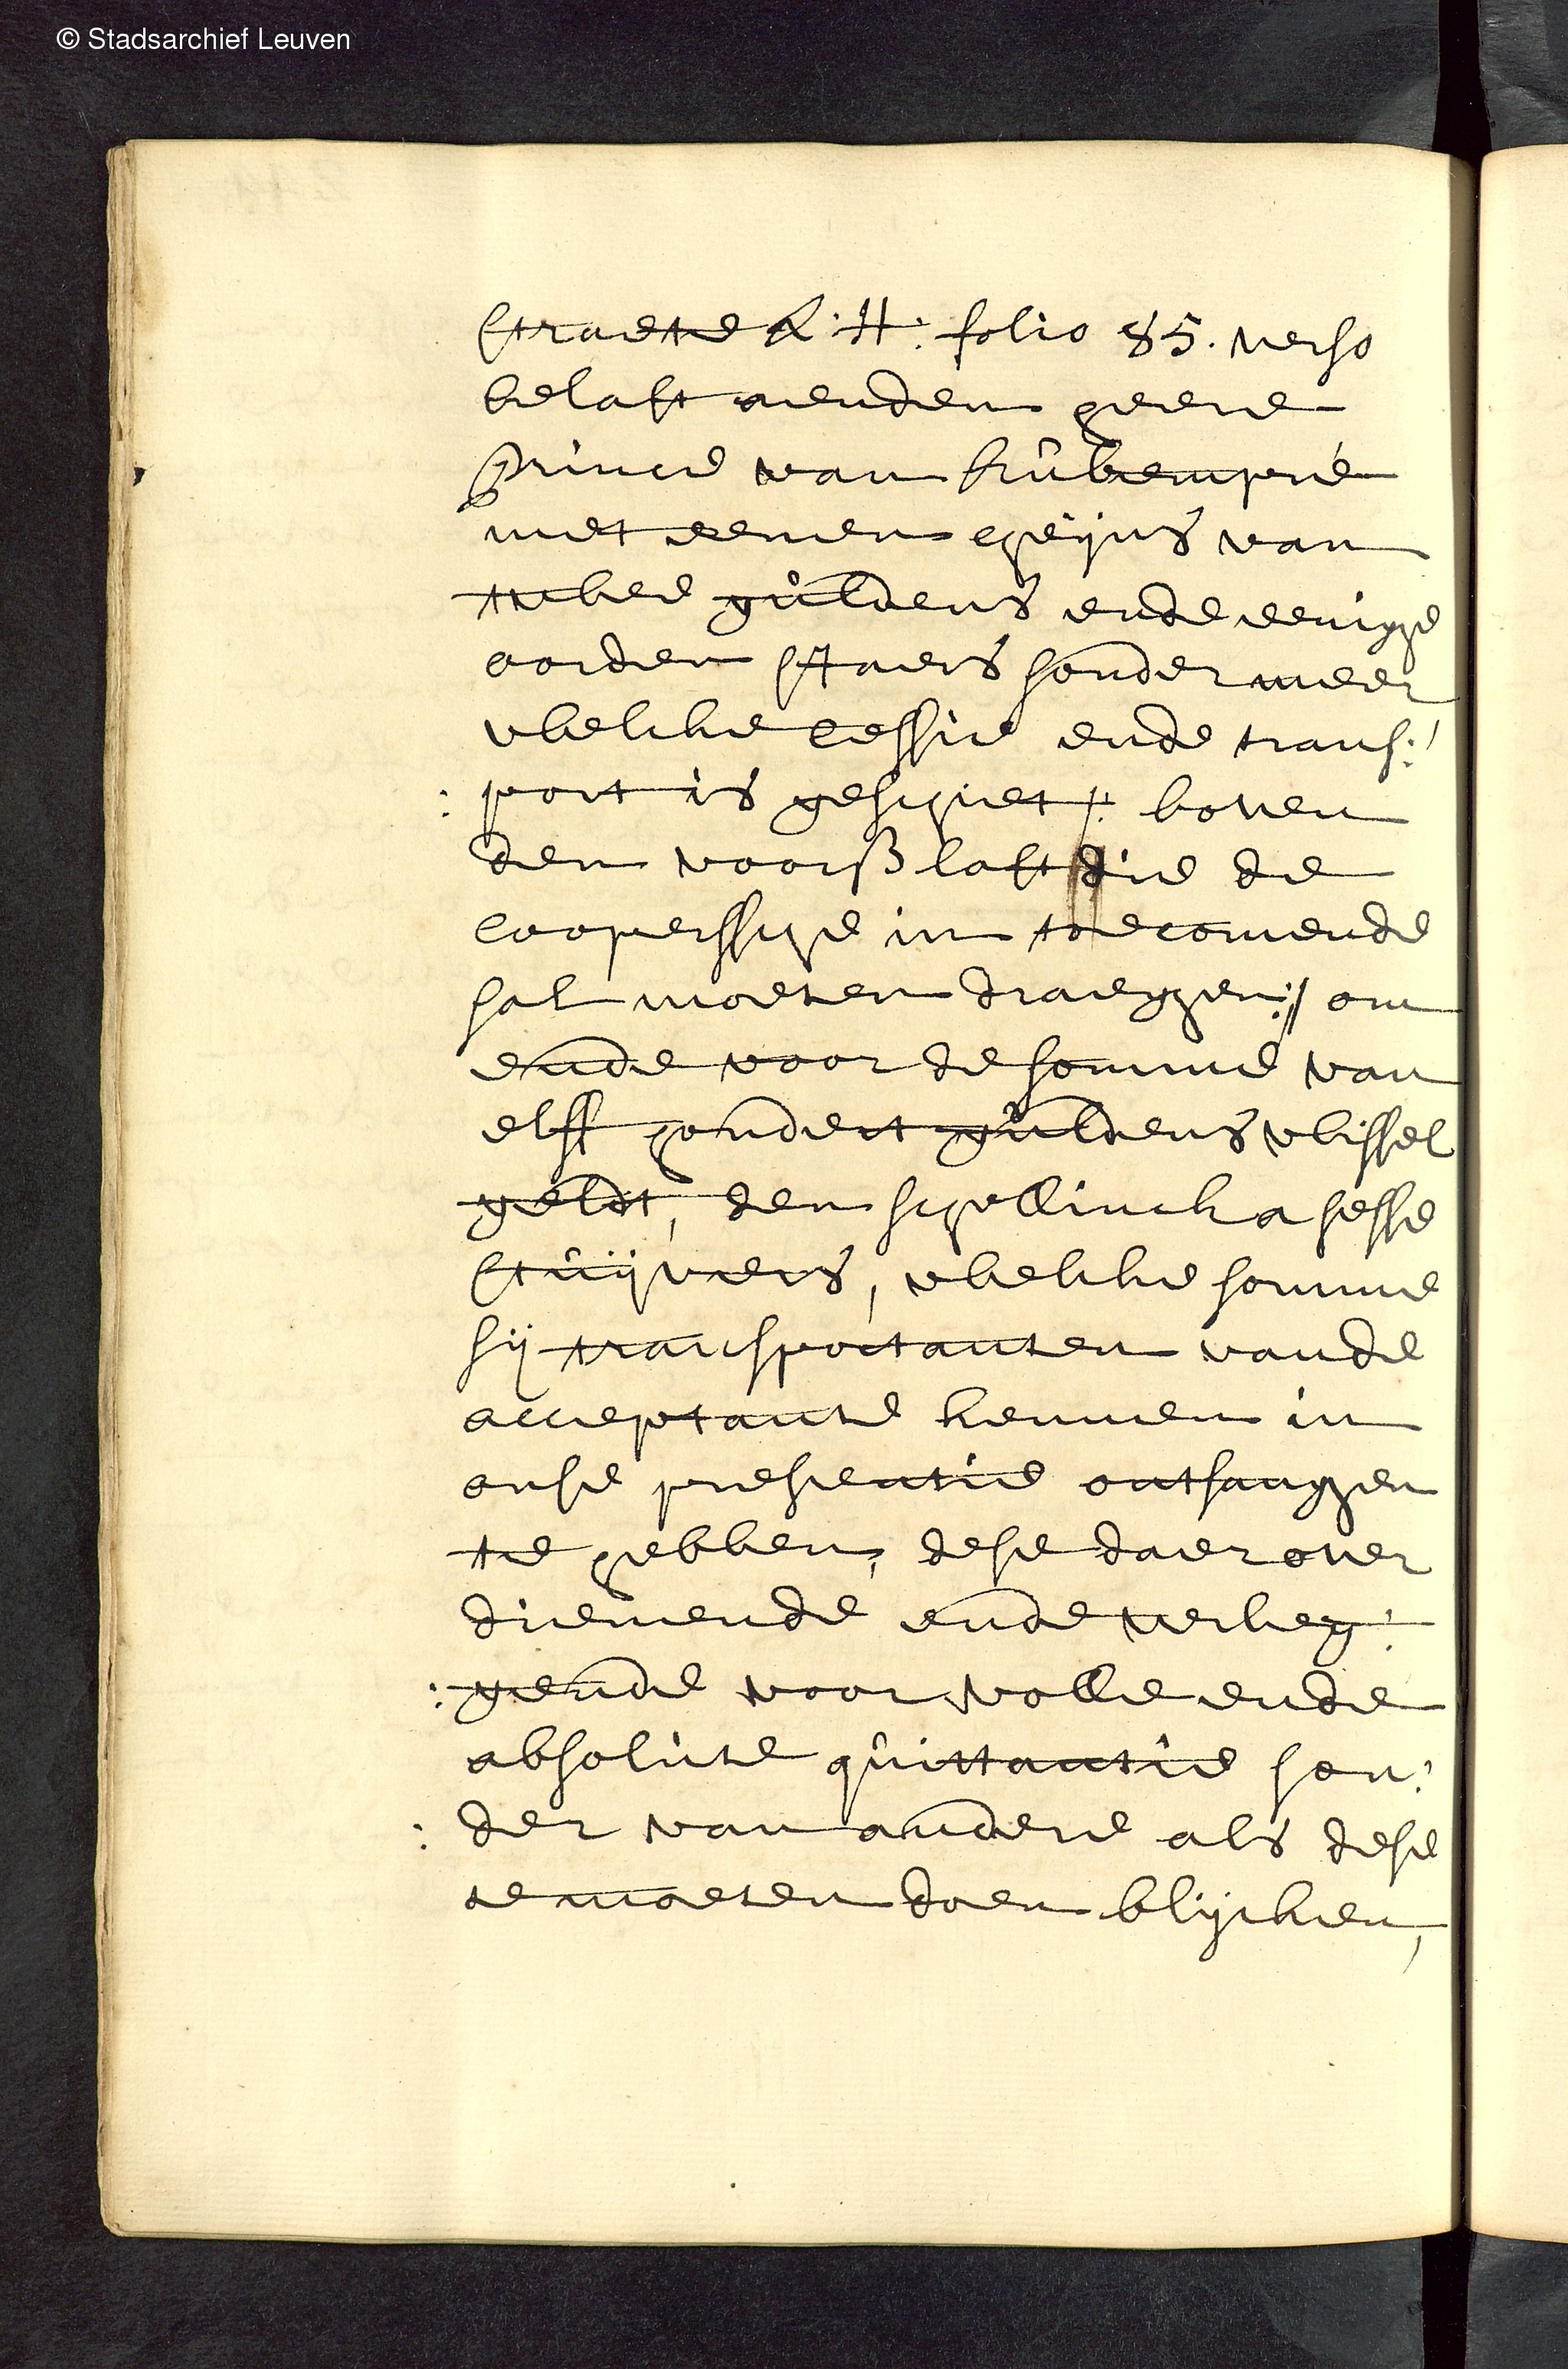 © Stadsarchief Leuven
straete L: H: folio 85. verso
belast aenden heere
Prince van Rubempré
met eenen chijns van
twee guldens ende eenighe
oorden stuers sonder meer
welcke cessie ende trans:
: port is geschiet /: boven
den voors last die de
coopersche in toecomende
sal moeten draeghen :/ om
ende voor de somme van
elff hondert guldens wissel
geldt, den schellinck a sesse
stuijvers, welcke somme
sij transportanten vande
acceptante kennen in
onse presentie ontfanghen
te hebben, dese daer over
dienende ende verleg:
: gende voor volle ende
absolute quittantie son:
: der van andere als dese
te moeten doen blijcken,